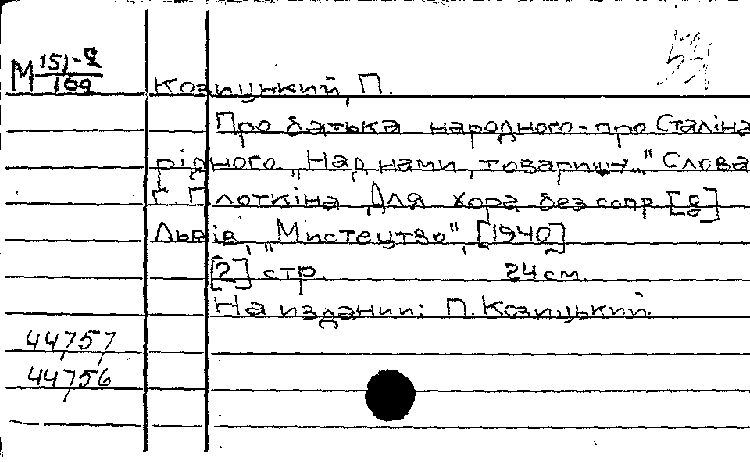 М 151-2
169
Козицький, П.
Про батька народного-про Сталіна
рідного. „Над нами, товариші..." Слова
Г. Плоткіна Для хора без сопр.
Львів, „Мистецтво", [1940]
[2] стр. 24 см.
На издании: П. Козицький.
44757
44756